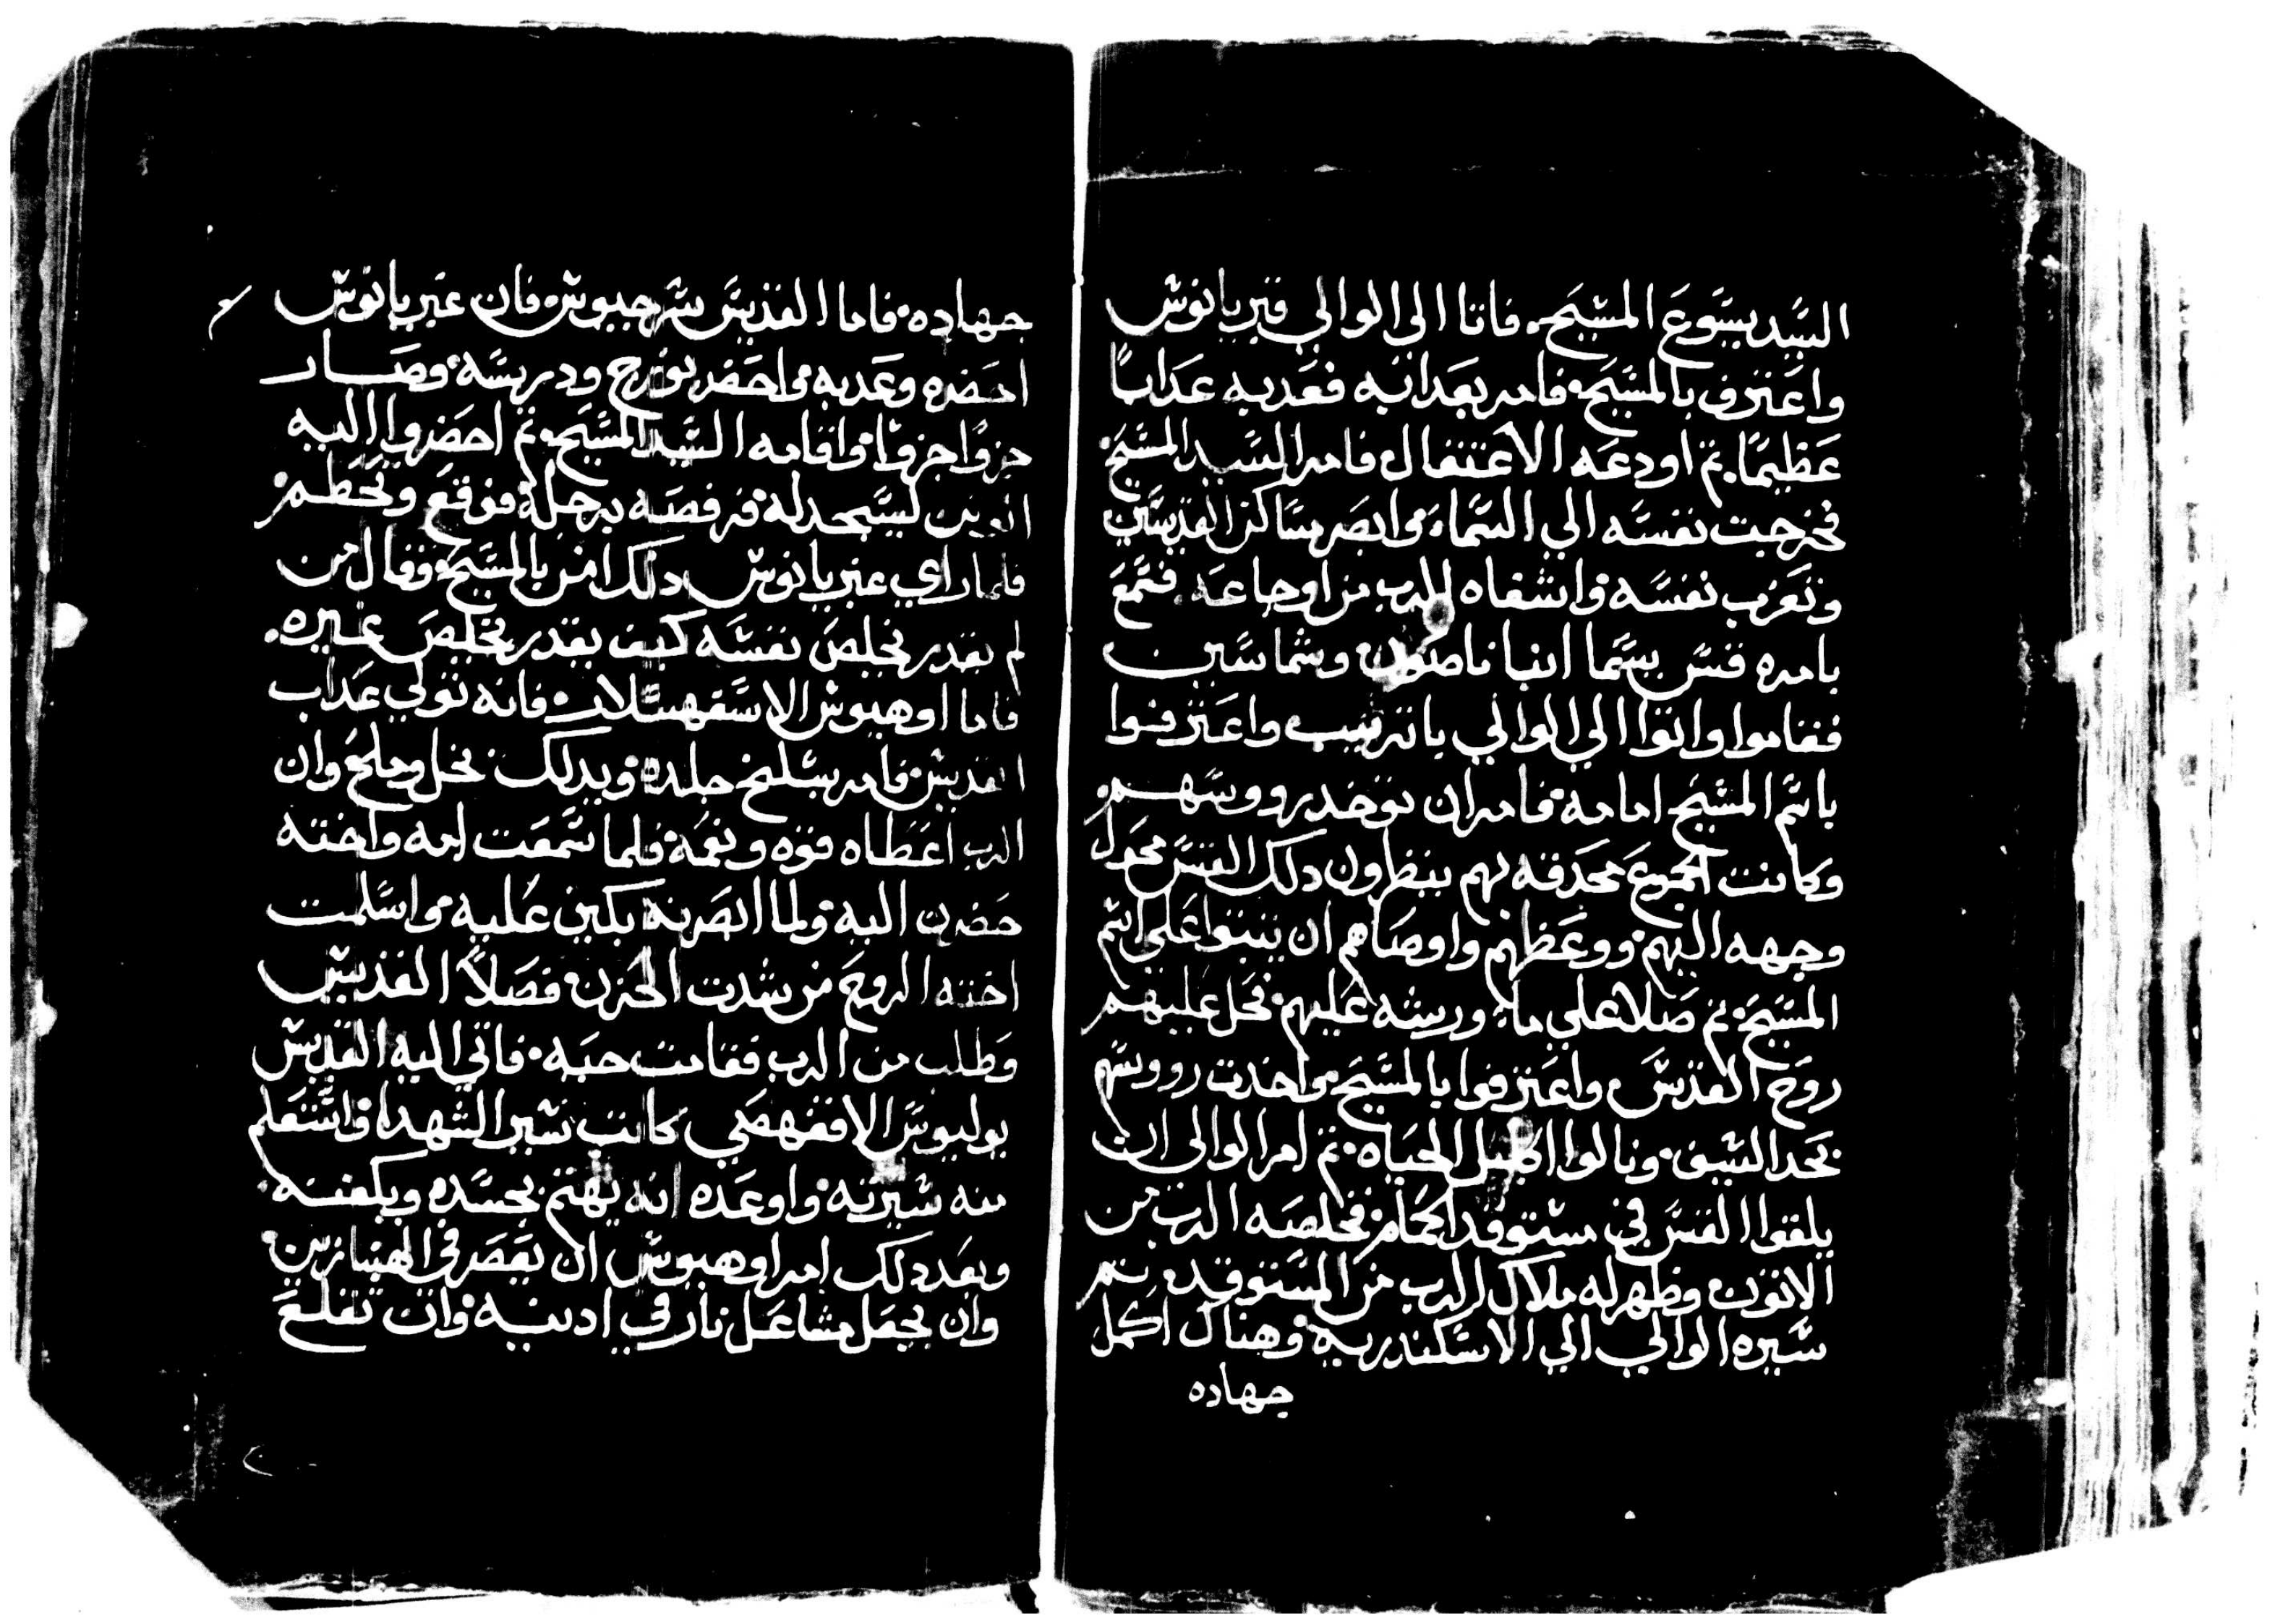 السيد يسوع المسيح. فاتا الى الوالي قبريانوس
واعترف بالمسيح. فامر بعدابه فعدبه عدابا
عظيما. تم اودعه الاعتقال فامر السيد المسيح
فخرجت نفسه الي السما. وابصر مساكن القديسين
وتعزت نفسه. واشفاه الرب من اوجاعه. فسمع
بامره قس يسما انبا ناصون وشماسين
فقاموا واتوا الي الوالي باتريب واعترفوا
باسم المسيح امامه. فامر ان توخد رووسهم.
وكانت الجموع محدقه بهم ينظرون دلك القس محول
وجهه اليهم. ووعظهم واوصاهم ان يتبتوا علي اسم
المسيح. تم صلا علي ما. ورشه عليهم. فحل عليهم
روح القدس واعترفوا بالمسيح. واخدت رووسهم
بحد السيف. ونالوا اكليل الحياه. تم امر الوالي ان
يلقوا القس في مستوقد الحمام. فخلصه الرب من
الاتون. وظهر له ملاك الرب من المستوقد. تم
سيره الوالي الي الاسكندريه. وهناك اكمل
جهاده
جهاده. فاما القديس سرجيوس. فان عبريانوس
احضره وعدبه. واحضر نورج ودريسه. وصار
جزوا جزوا. واقامه السيد المسيح. تم احضروا اليه
ليسجد له. فرفصه برجله. فوقع وتحطم.
فلما راي عبريانوس دلك امن بالمسيح. وقال من
لم يقدر يخلص نفسه كيف يقدر يخلص غيره.
فاما اوهيوس الاسفهسلار. فانه تولي عداب
القديس. فامر بسلخ جلده. ويدلك بخل وملح. وان
الرب اعطاه قوه ونعمه. فلما سمعت امه واخته
حضرن اليه. ولما ابصرنه بكين عليه. واسلمت
اخته الروح من شدت الحزن. فصلا القديس
وطلب من الرب فقامت حيه. فاتي اليه القديس
يوليوس الاقفهصي كاتب سير الشهدا. واستعلم
منه سيرته. واوعده انه يهتم بجسده ويكفنه.
وبعد دلك امر اوهيوس ان يعصر في الهنبازين.
وان يجعل مشاعل نار في ادنيه. وان تقلع